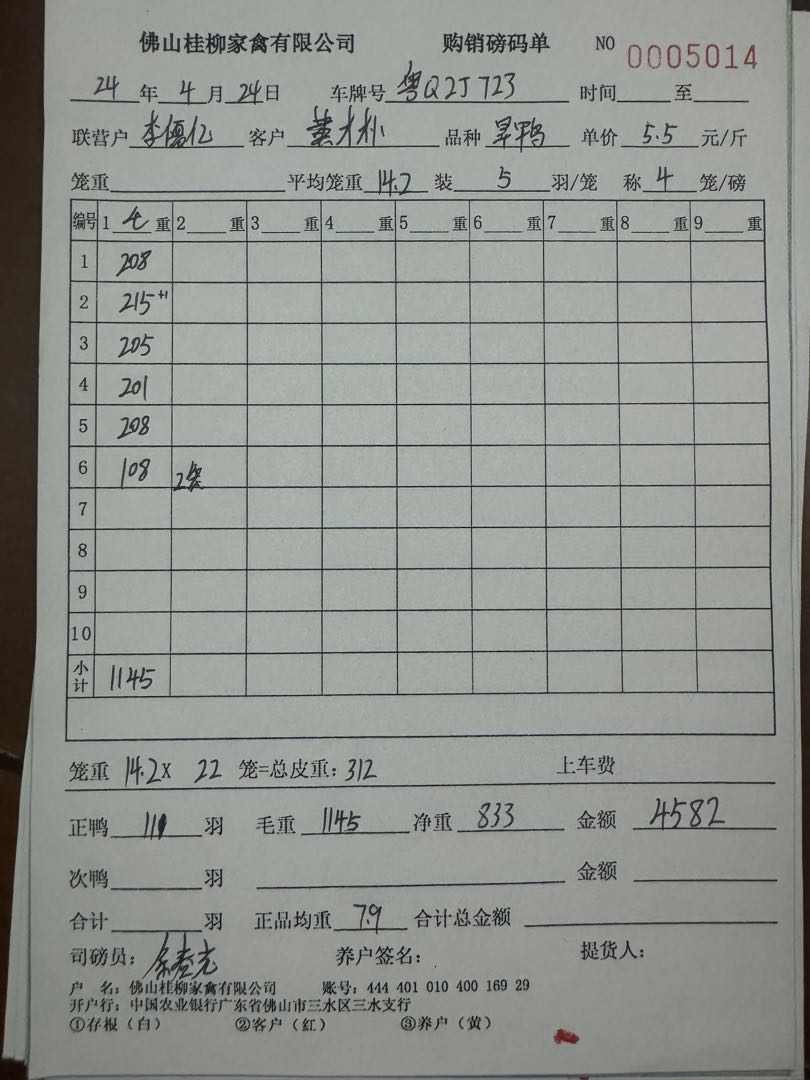 佛山桂柳家禽有限公司 购销磅码单 NO 0005014
24 年 4 月 24 日 车牌号 粤Q2J723 时间 至
联营户 李儒亿 客户 黄才朴 品种 旱鸭 单价 5.5 元/斤
笼重 平均笼重 14.2 装 5 羽/笼 称 4 笼/磅
编号 1 毛 重 2 重 3 重 4 重 5 重 6 重 7 重 8 重 9 重
1 208
2 215 +1
3 205
4 201
5 208
6 108 2笼
7
8
9
10
小计 1145
笼重 14.2X 22 笼=总皮重: 312 上车费
正鸭 111 羽 毛重 1145 净重 833 金额 4582
次鸭 羽 金额
合计 羽 正品均重 7.9 合计总金额
司磅员: 养户签名: 提货人:
户 名: 佛山桂柳家禽有限公司 账号: 444 401 010 400 169 29
开户行: 中国农业银行广东省佛山市三水区三水支行
①存根（白） ②客户（红） ③养户（黄）